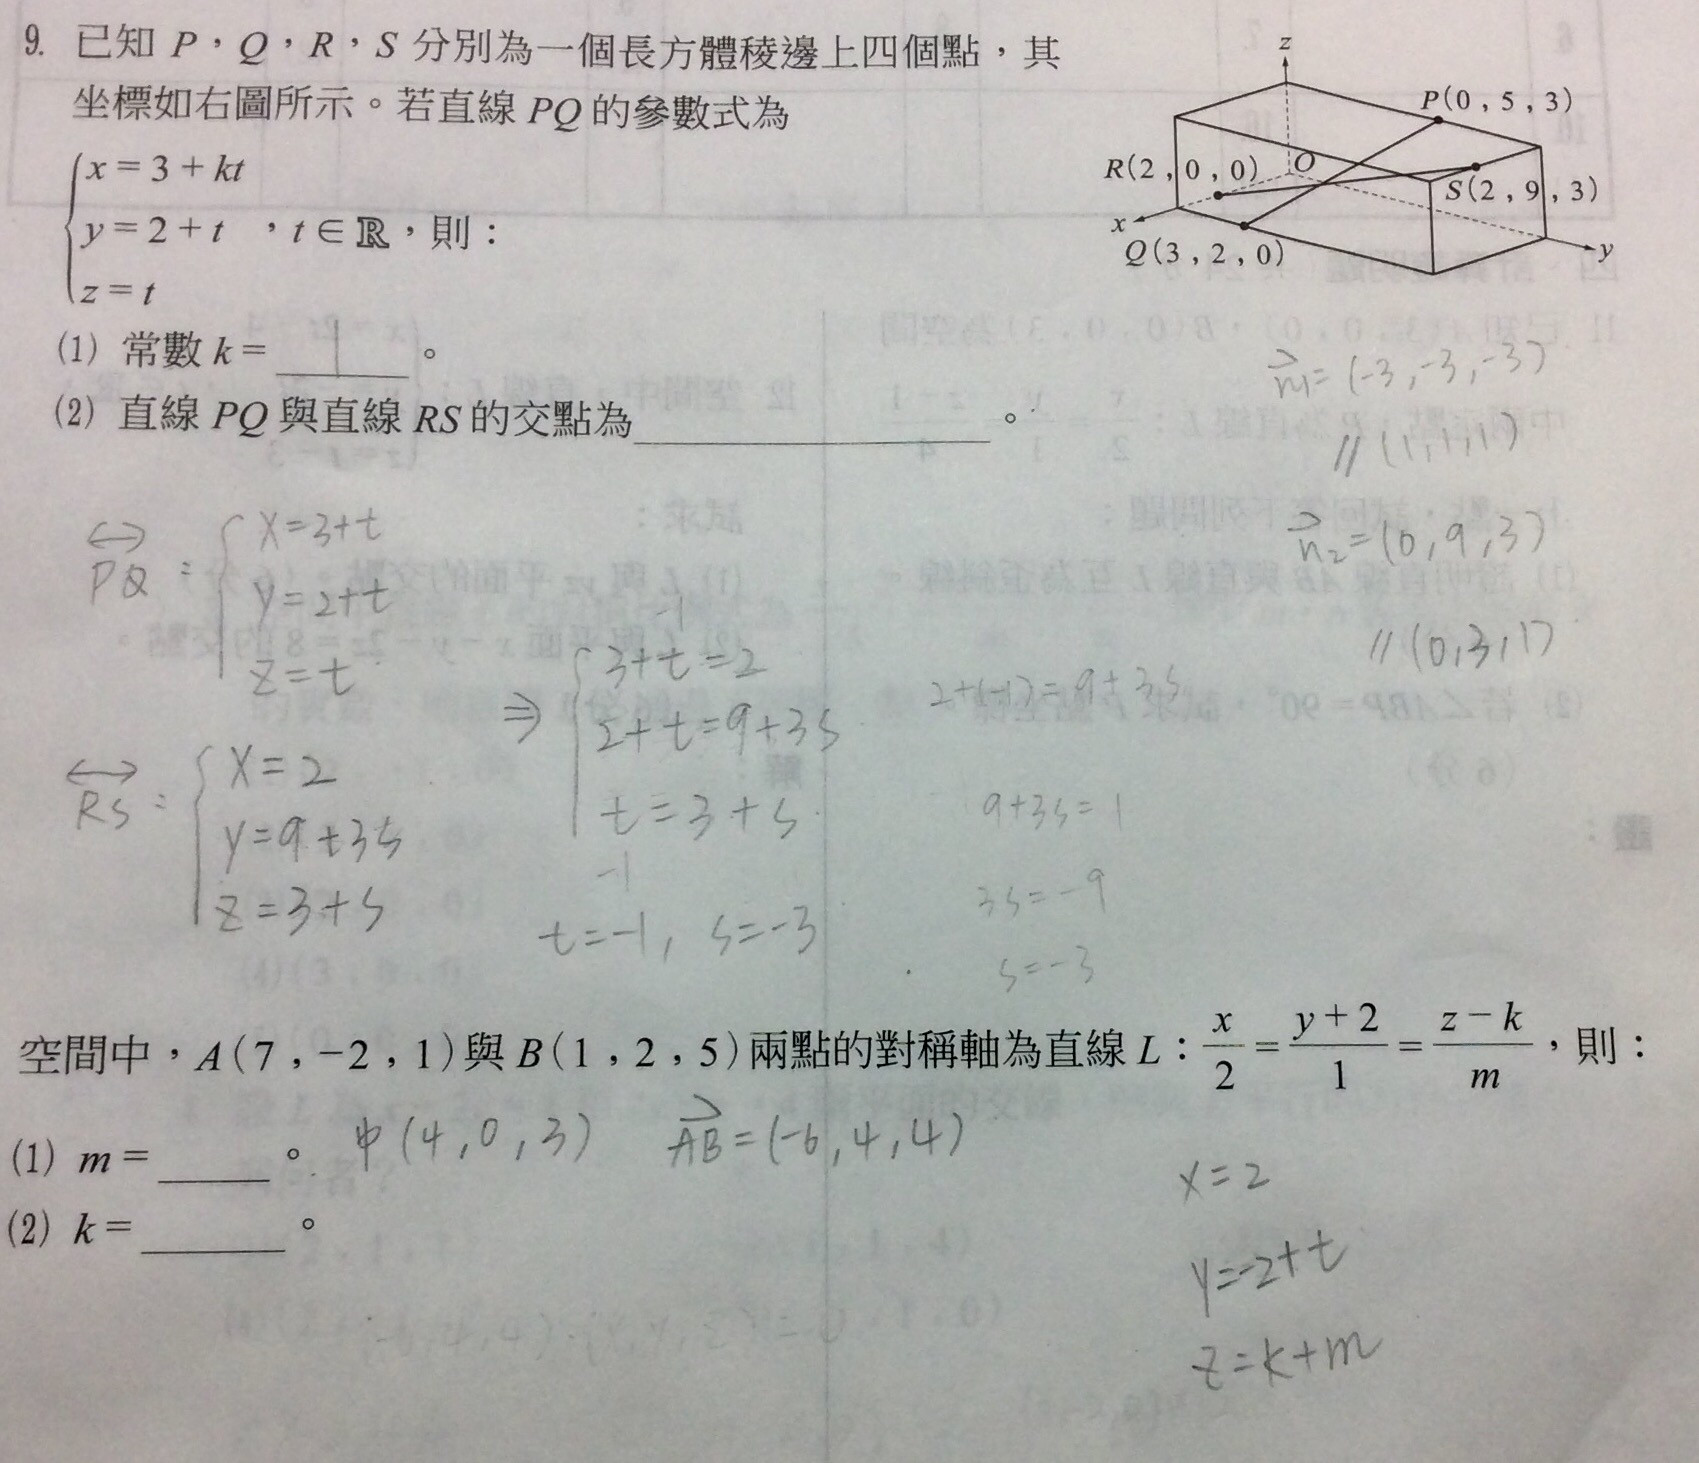 9. 已知 P，Q，R，S 分別為一個長方體稜邊上四個點，其
坐標如右圖所示。若直線 PQ 的參數式為
x = 3 + kt
y = 2 + t ，t ∈ ℝ，則：
z = t
(1) 常數 k = 1 。
(2) 直線 PQ 與直線 RS 的交點為＿＿＿＿。
z
P(0 , 5 , 3)
R(2 , 0 , 0)
O
S(2 , 9 , 3)
x
Q(3 , 2 , 0)
y
n₁ = (-3, -3, -3)
// (1, 1, 1)
n₂ = (0, 9, 3)
// (0, 3, 1)
PQ : x = 3+t
y = 2+t
z = t
RS : x = 2
y = 9+3s
z = 3+s
⇒ 3+t = 2
-1
2+t = 9+3s
t = 3+s
-1
t = -1, s = -3
2+(-1) = 9+3s
9+3s = 1
3s = -9
s = -3
空間中，A(7 , -2 , 1) 與 B(1 , 2 , 5) 兩點的對稱軸為直線 L：x/2 = (y+2)/1 = (z-k)/m，則：
(1) m = ＿＿＿。 中 (4, 0, 3) AB = (-6, 4, 4)
(2) k = ＿＿＿。
x = 2
y = -2+t
z = k+m